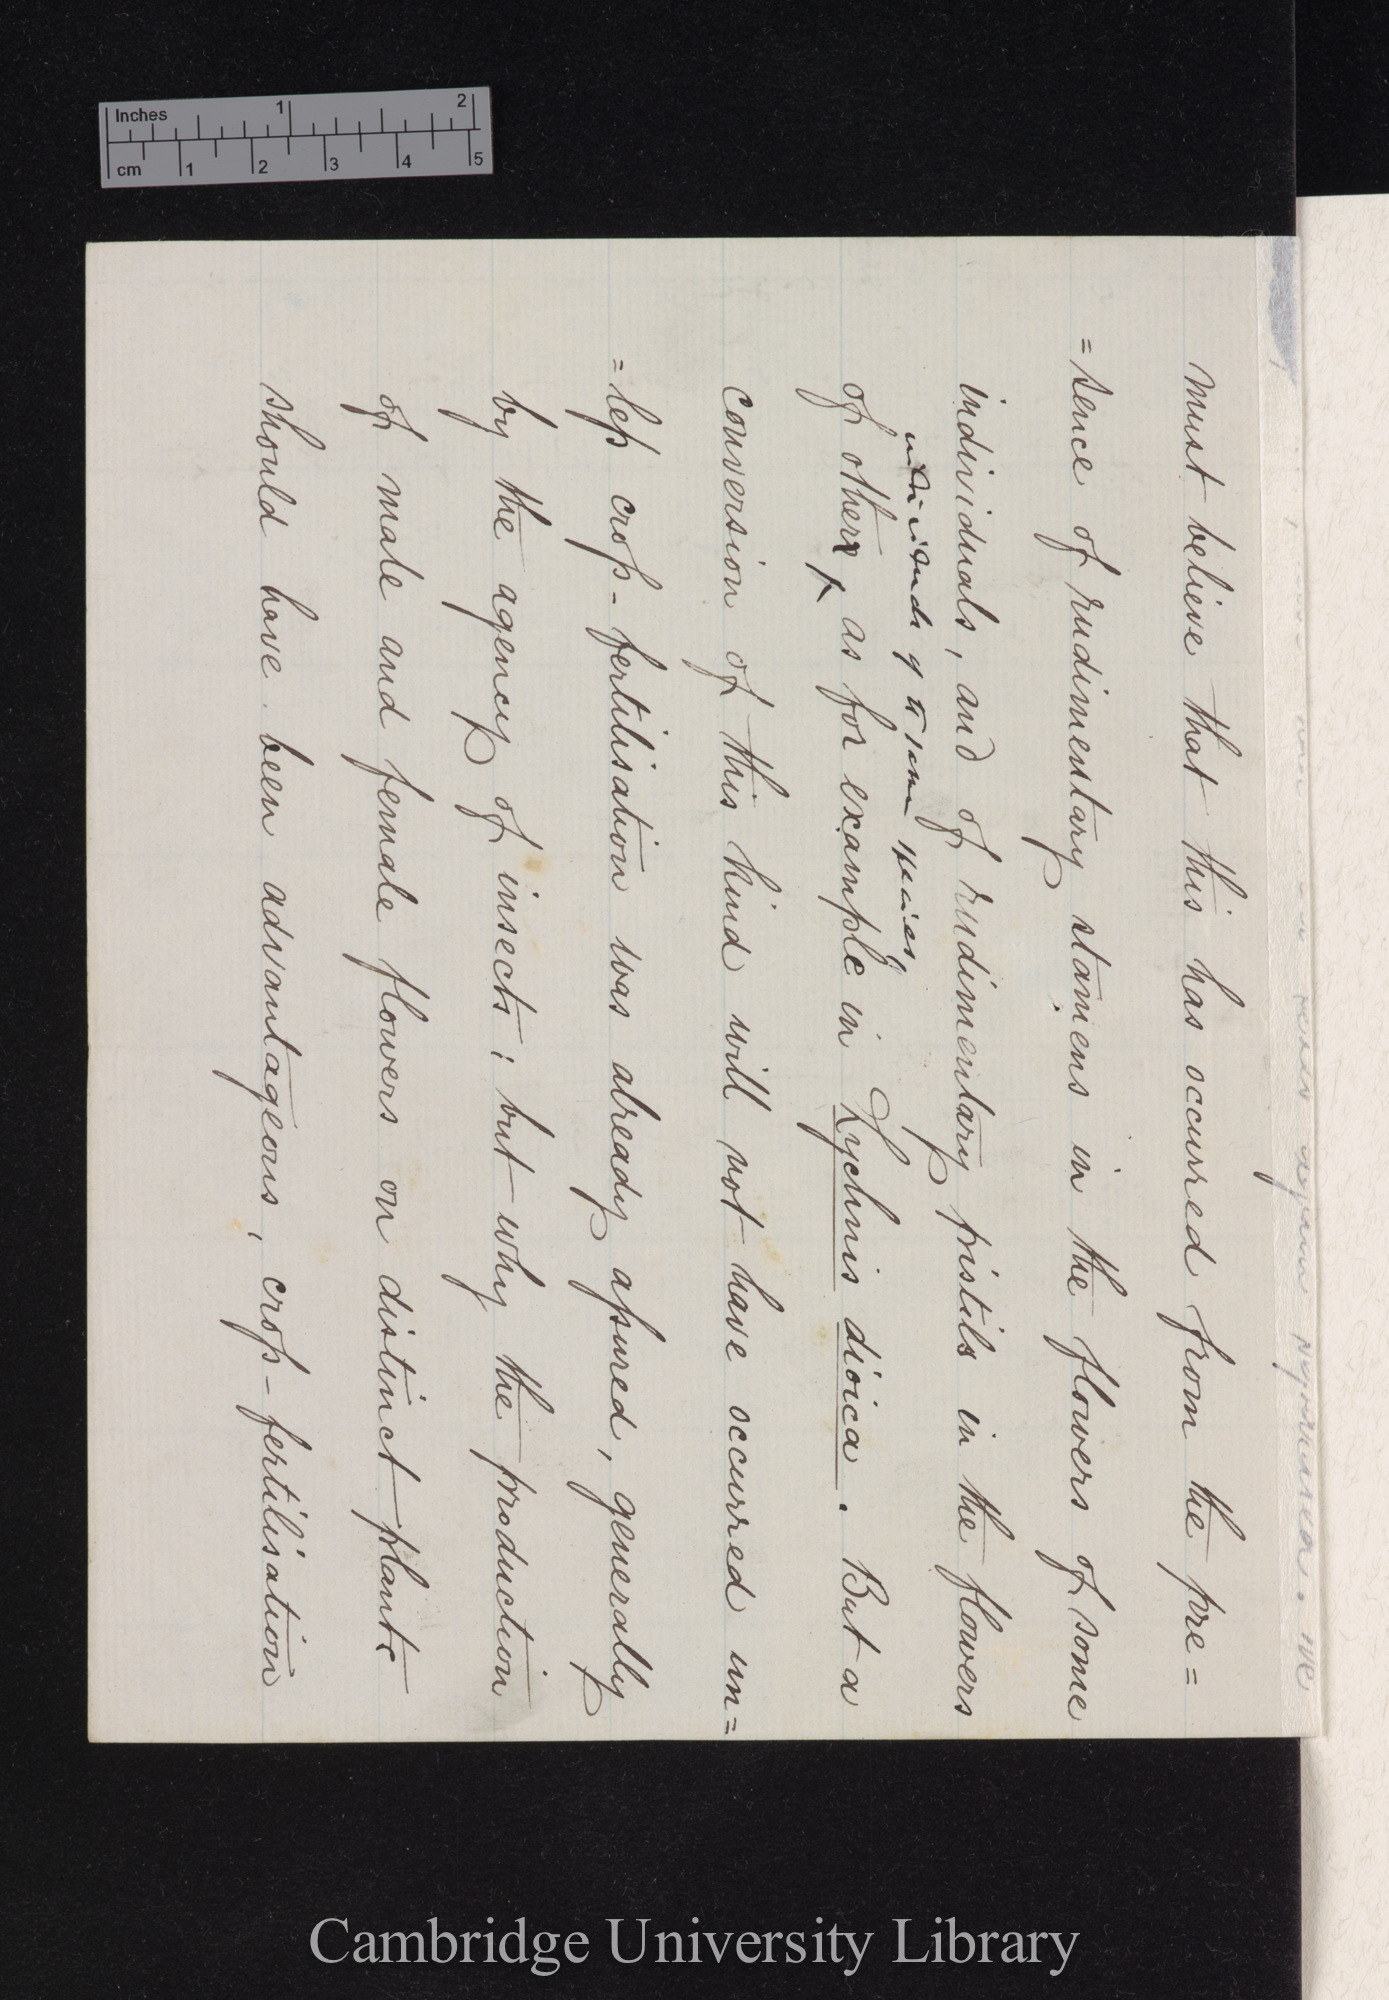 Inches 1 2
cm 1 2 3 4 5
must believe that this has occurred from the pre=
=sence of rudimentary stamens in the flowers of some
individuals, and of rudimentary pistils in the flowers
individuals of the same species,
of others, as for example in Lychnis dioica. But a
conversion of this kind will not have occurred un=
=less cross-fertilisation was already assured, generally
by the agency of insects; but why the production
of male and female flowers on distinct plants
should have been advantageous, cross-fertilisation
Cambridge University Library